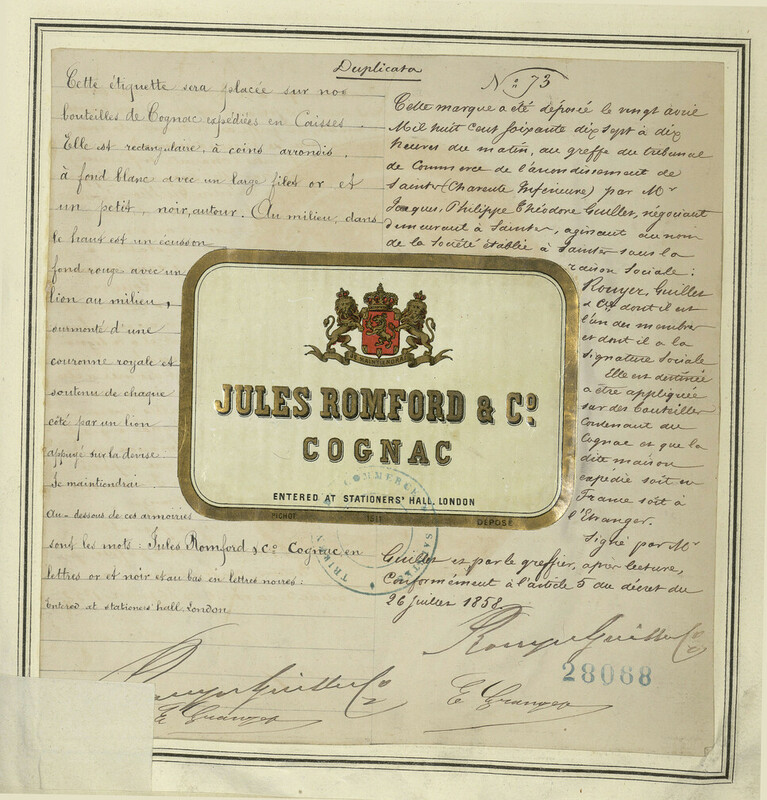 Duplicata
Cette étiquette sera placée sur nos
bouteilles de Cognac expédiées en Caisses.
Elle est rectangulaire, à coins arrondis.
à fond blanc avec un large filet or et
un petit, noir, autour. Au milieu, dans
le haut est un écusson
fond rouge avec un
lion au milieu,
surmonté d'une
couronne royale et
soutenu de chaque
côté par un lion
appuyé sur la devise
Je maintiendrai.
Au-dessous de ces armoiries
sont les mots: Jules Romford & Co. Cognac en
lettres or et noir et au bas en lettres noires:
Entered at stationers' hall, London
Rouyer Guillet & Co
E. Granger
No. 73
Cette marque a été déposée le vingt avril
Mil huit cent soixante dix sept à dix
heures du matin, au greffe du tribunal
de Commerce de l'arrondissement de
Saintes (Charente Inférieure) par Mr
Jacques, Philippe Théodore Guillet, négociant
demeurant à Saintes, agissant au nom
de la Société établie à Saintes sous la
raison Sociale:
Rouyer, Guillet
& Cie. dont il est
l'un des membres
et dont il a la
signature Sociale
Elle est destinée
à être appliquée
sur des bouteilles
Contenant du
Cognac et que la
dite maison
expédie soit en
France soit à
l'Etranger.
Signé par Mr
Guillet et par le greffier, après lecture,
Conformément à l'article 5 du décret du
26 juillet 1858.
Rouyer Guillet & Co
28088
E. Granger
JE MAINTIENDRAI
JULES ROMFORD & Co.
COGNAC
ENTERED AT STATIONERS' HALL, LONDON
PICHOT 1511 DÉPOSÉ